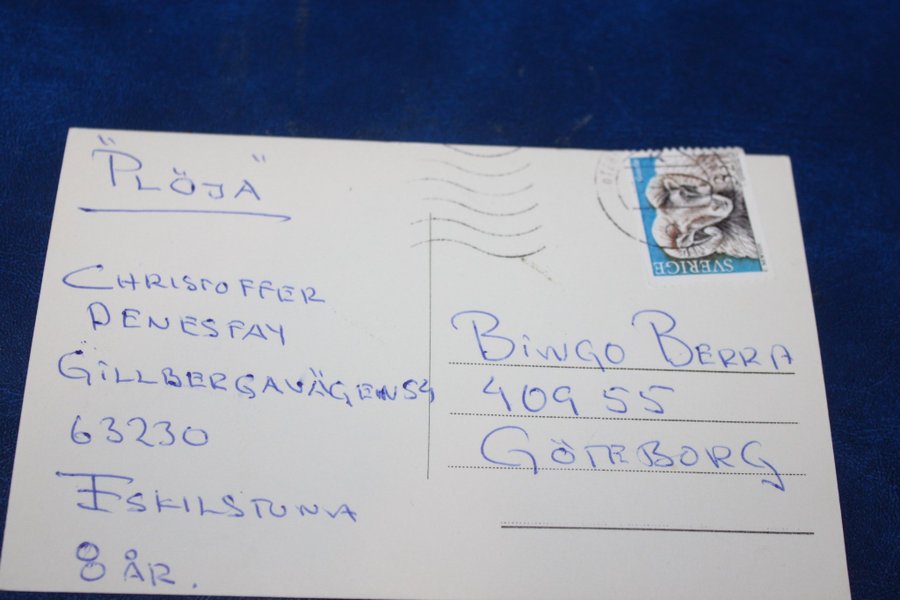 "PLÖJA"
CHRISTOFFER
DENESFAY
GILLBERGAVÄGEN 54
63230
ESKILSTUNA
8 ÅR.
SVERIGE
BINGO BERRA
409 55
GÖTEBORG